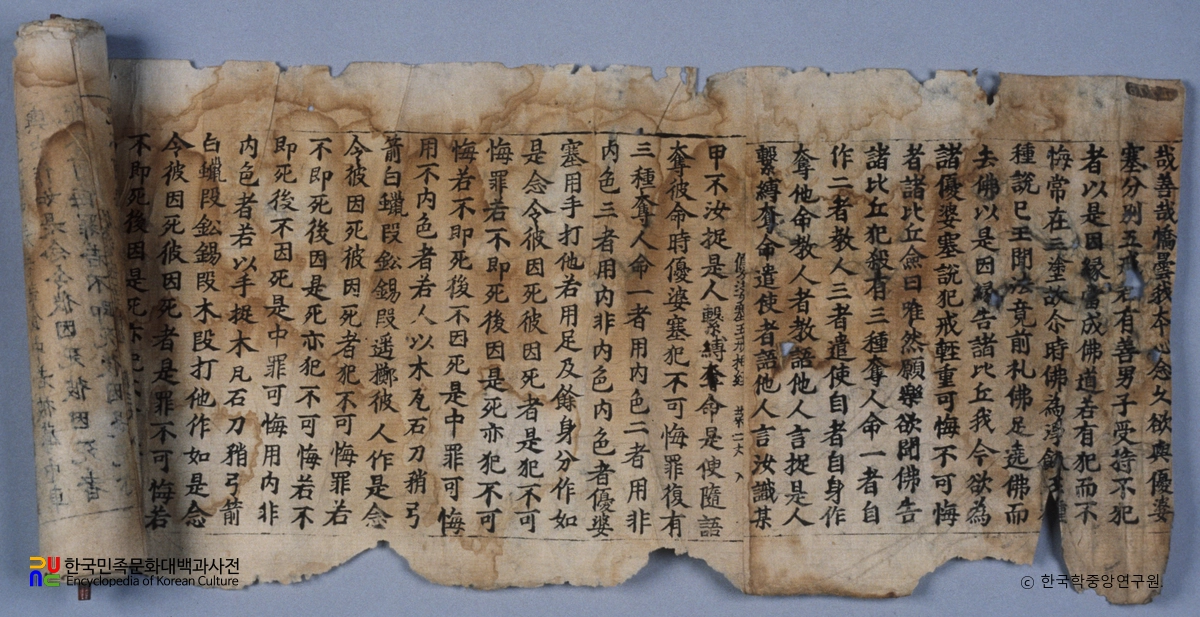 哉善哉憍曇我本心念久欲與優婆
塞分別五戒若有善男子受持不犯
者以是因縁當成佛道若有犯而不
悔常在三塗故尒時佛為淨飯王種
種說已王聞法竟前礼佛足遶佛而
去佛以是因縁告諸比丘我今欲為
諸優婆塞說犯戒輕重可悔不可悔
者諸比丘僉曰唯然願樂欲聞佛告
諸比丘犯殺有三種奪人命一者自
作二者教人三者遣使自者自身作
奪他命教人者教語他人言捉是人
繫縛奪命遣使者語他人言汝識某
甲不汝捉是人繫縛奪命是使隨語
奪彼命時優婆塞犯不可悔罪復有
三種奪人命一者用内色二者用非
内色三者用内非内色内色者優婆
塞用手打他若用足及餘身分作如
是念令彼因死彼因死者是犯不可
悔罪若不即死後因是死亦犯不可
悔若不即死後不因死是中罪可悔
用不内色者若人以木瓦石刀矟弓
箭白鑞段鈆錫段遥擲彼人作是念
令彼因死彼因死者犯不可悔罪若
不即死後因是死亦犯不可悔若不
即死後不因死是中罪可悔用内非
内色者若以手捉木瓦石刀矟弓箭
白鑞段鈆錫段木段打他作如是念
令彼因死彼因死者是罪不可悔若
不即死後因是死亦犯
한국민족문화대백과사전
Encyclopedia of Korean Culture
ⓒ 한국학중앙연구원